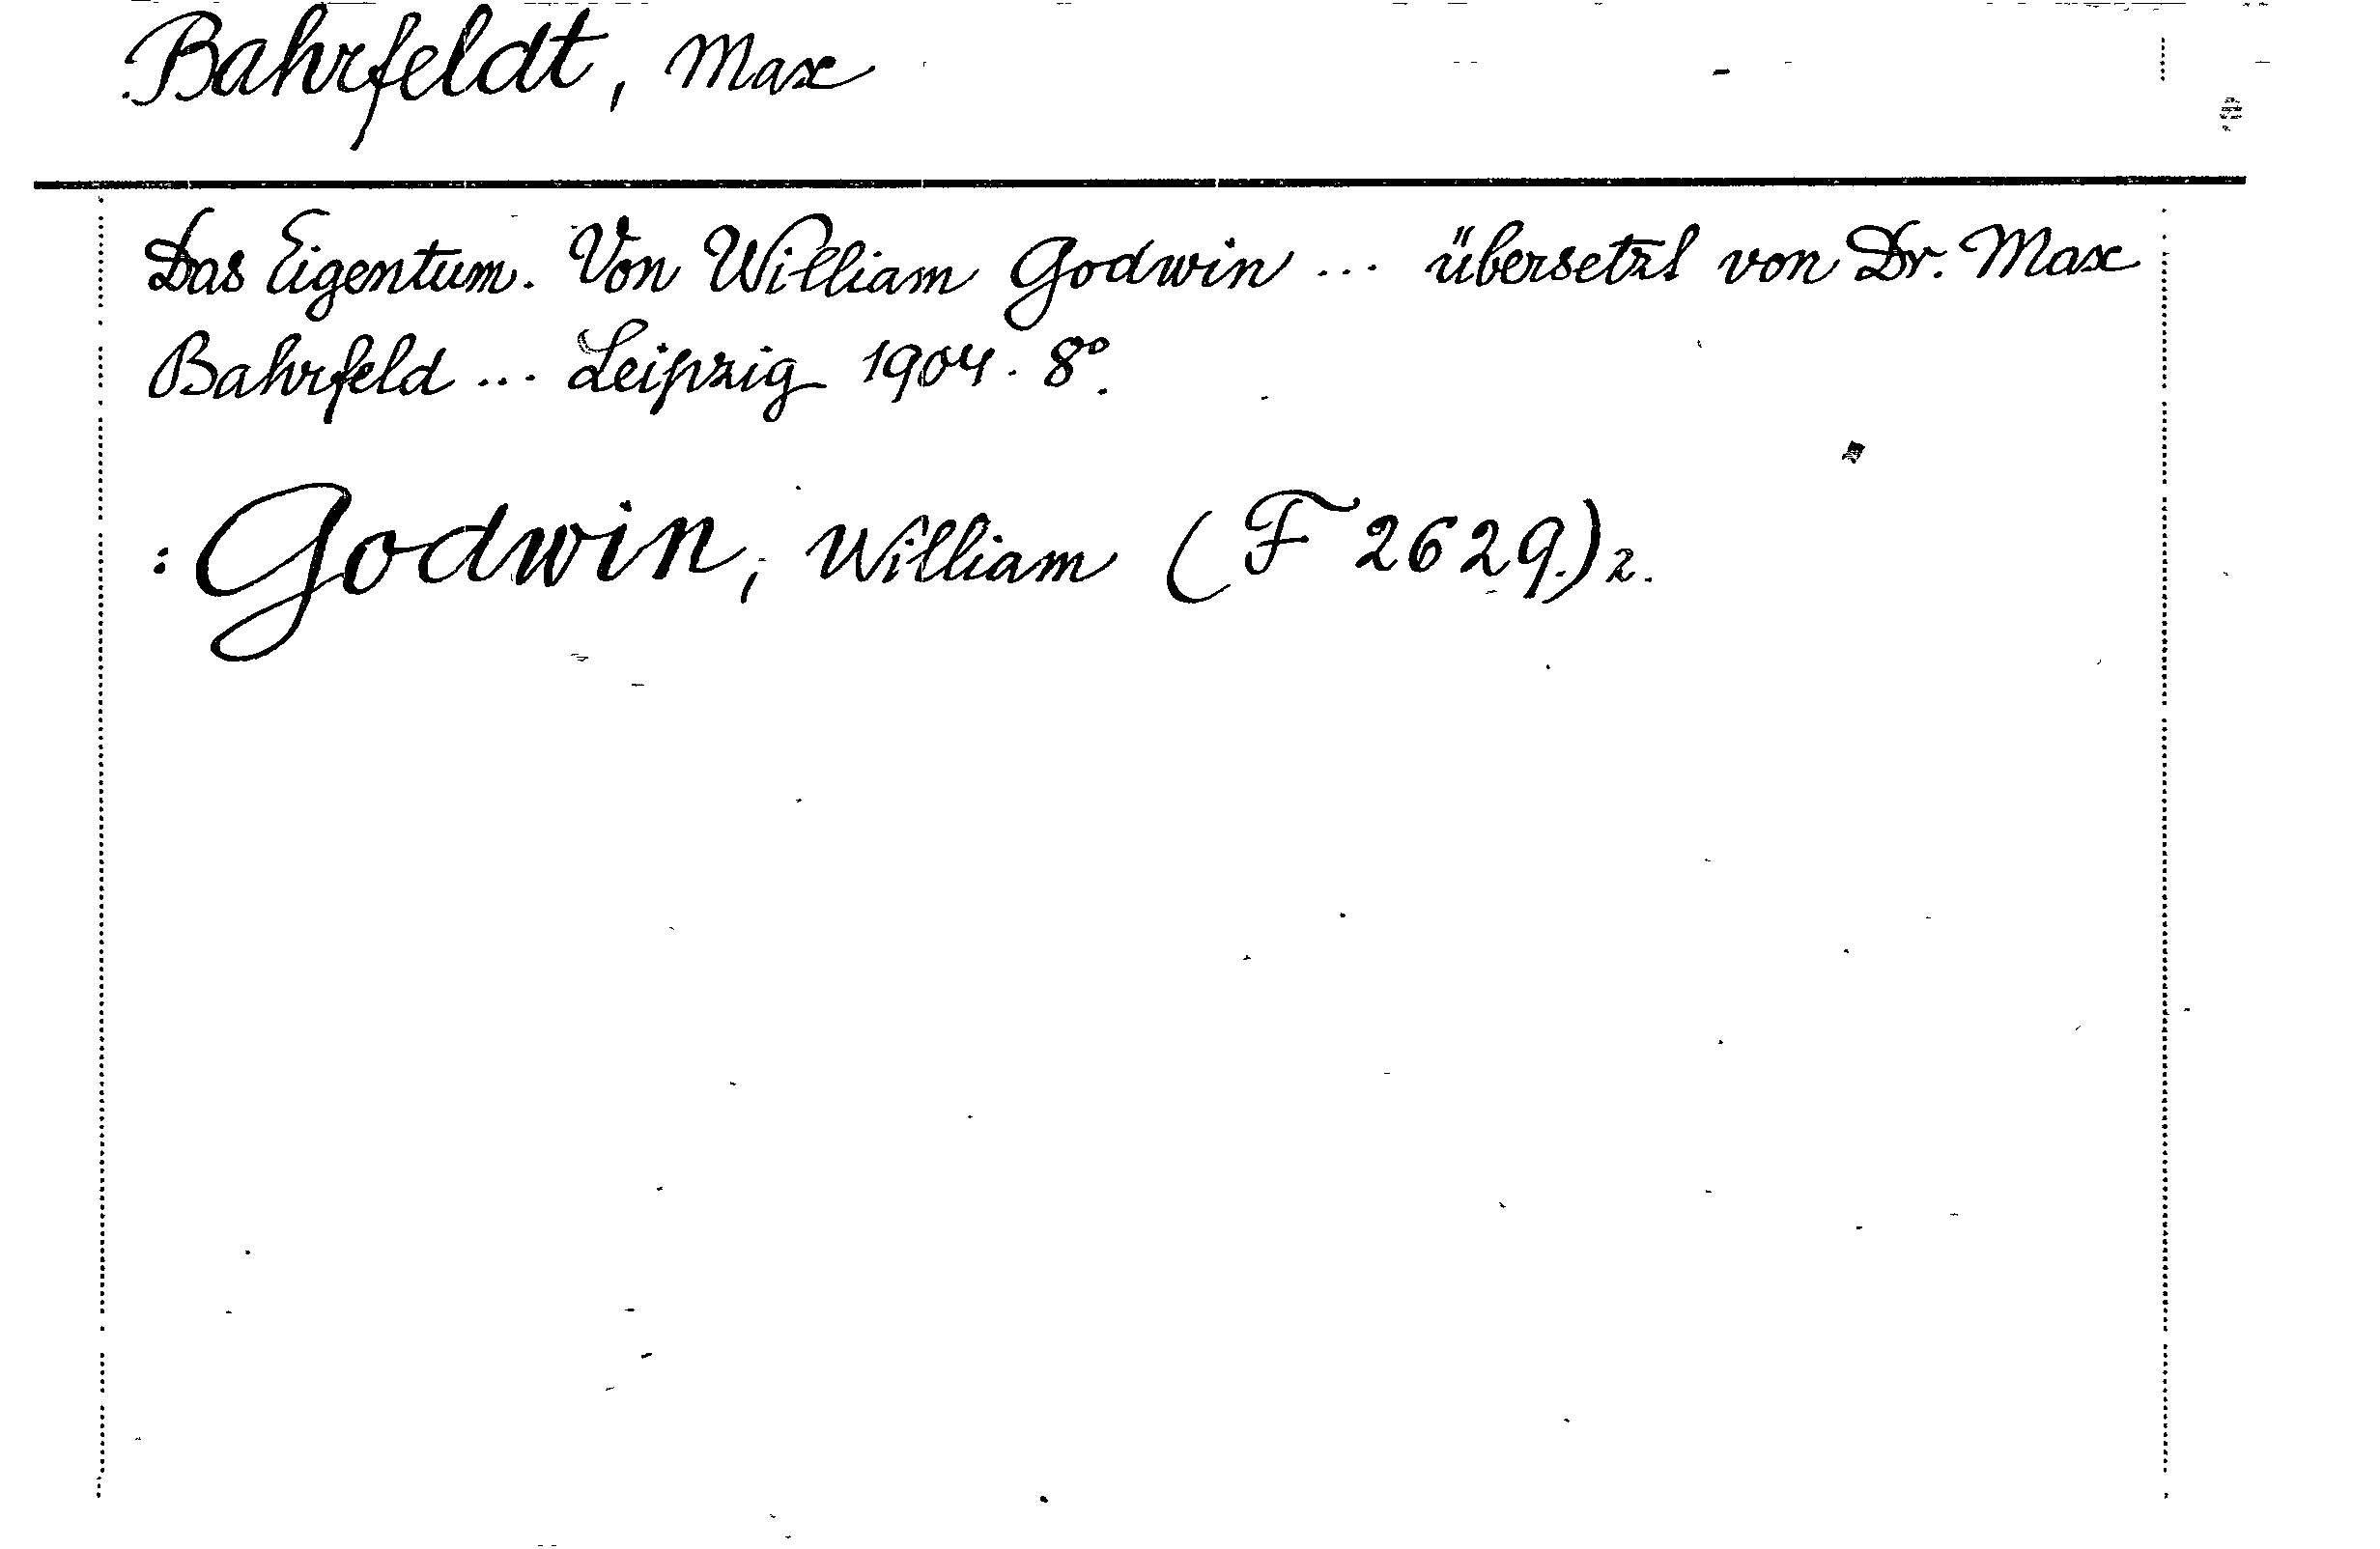 Bahrfeldt, Max
Das Eigentum. Von William Godwin ... übersetzt von Dr. Max
Bahrfeld ... Leipzig 1904. 8°.
: Godwin, William (F 2629.) 2.